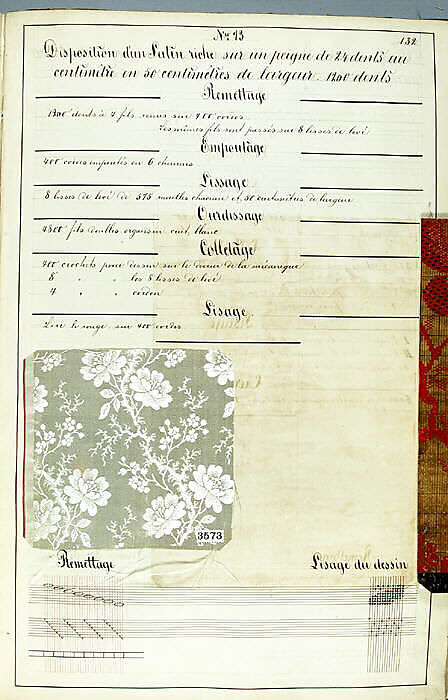 N° 13
132
Disposition d'un Satin riche sur un peigne de 24 dents au
centimètre en 50 centimètres de largeur. 1200 dents
Remettage
1200 dents à 4 fils remis sur 400 cordes
les mêmes fils sont passés sur 8 lisses de levé
Empoutage
400 cordes empoutés en 6 chemins
Lissage
8 lisses de levé de 575 mailles chacune et 50 centimètres de largeur
Ourdissage
4800 fils doubles organsin cuit, blanc
Colletage
400 crochets pour dessin sur le de la mécanique
8 " " les 8 lisses de levé
4 " " cordon
Lisage
Lire le rouge sur 400 cordes
3573
Remettage
Lisage du dessin